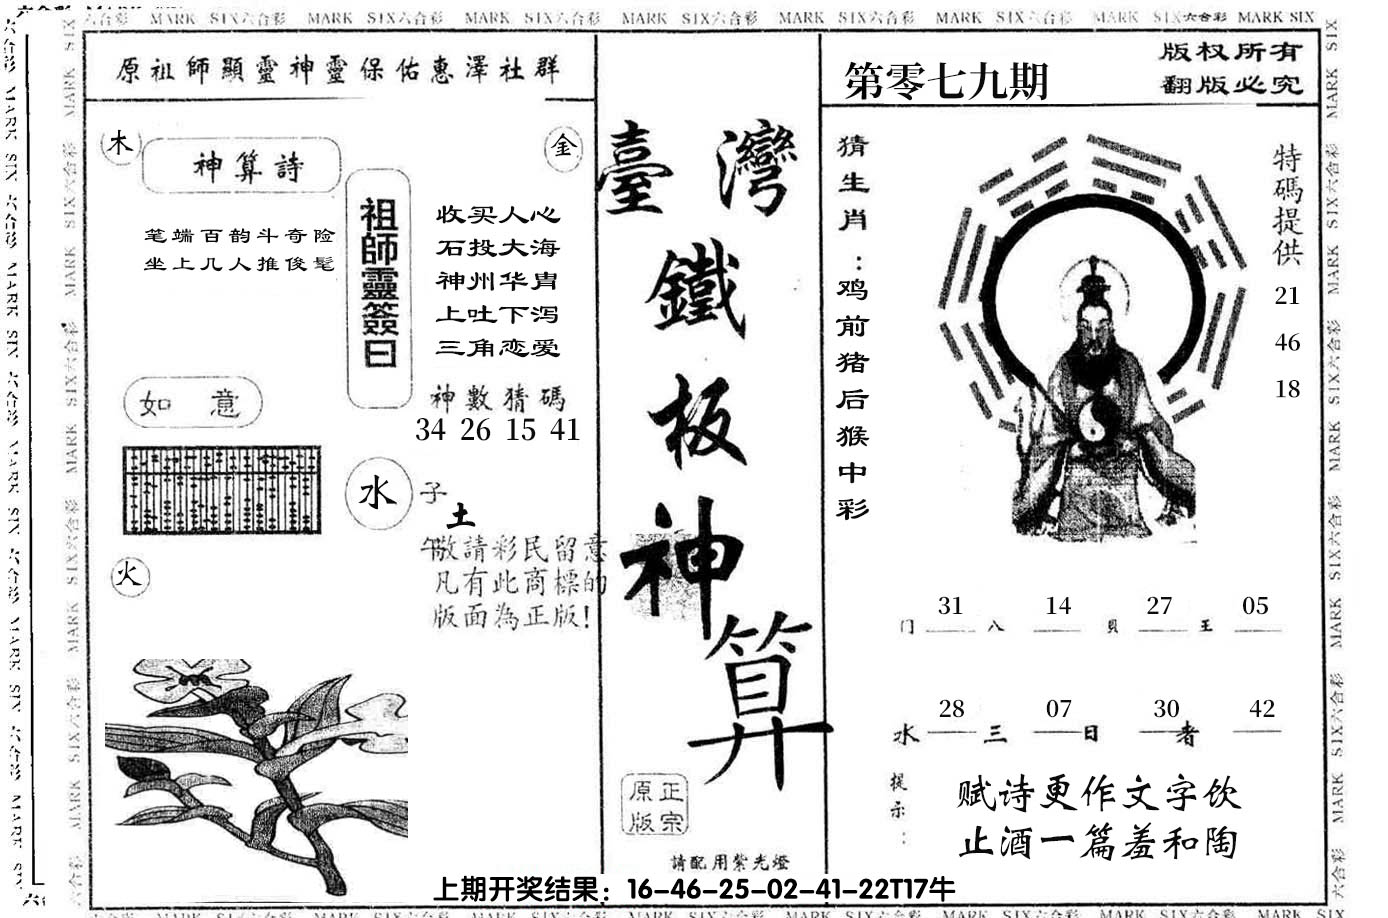 原祖師顯靈神靈保佑惠澤社群
木
神算詩
金
笔端百韵斗奇险
坐上几人推俊髦
祖師靈簽曰
收买人心
石投大海
神州华胄
上吐下泻
三角恋爱
神數猜碼
34 26 15 41
如意
水
子
土
午
火
敬請彩民留意
凡有此商標的
版面為正版!
臺灣
鐵
板
神
算
原正
版宗
請配用紫光燈
第零七九期
版权所有
翻版必究
猜生肖：鸡前猪后猴中彩
特碼提供
21
46
18
31 14 27 05
门 八 貝 王
28 07 30 42
水 三 日 者
提示：
赋诗更作文字饮
止酒一篇羞和陶
上期开奖结果：16-46-25-02-41-22T17牛
MARK SIX六合彩 MARK SIX六合彩 MARK SIX六合彩 MARK SIX六合彩 MARK SIX六合彩 MARK SIX六合彩 MARK SIX六合彩 MARK SIX